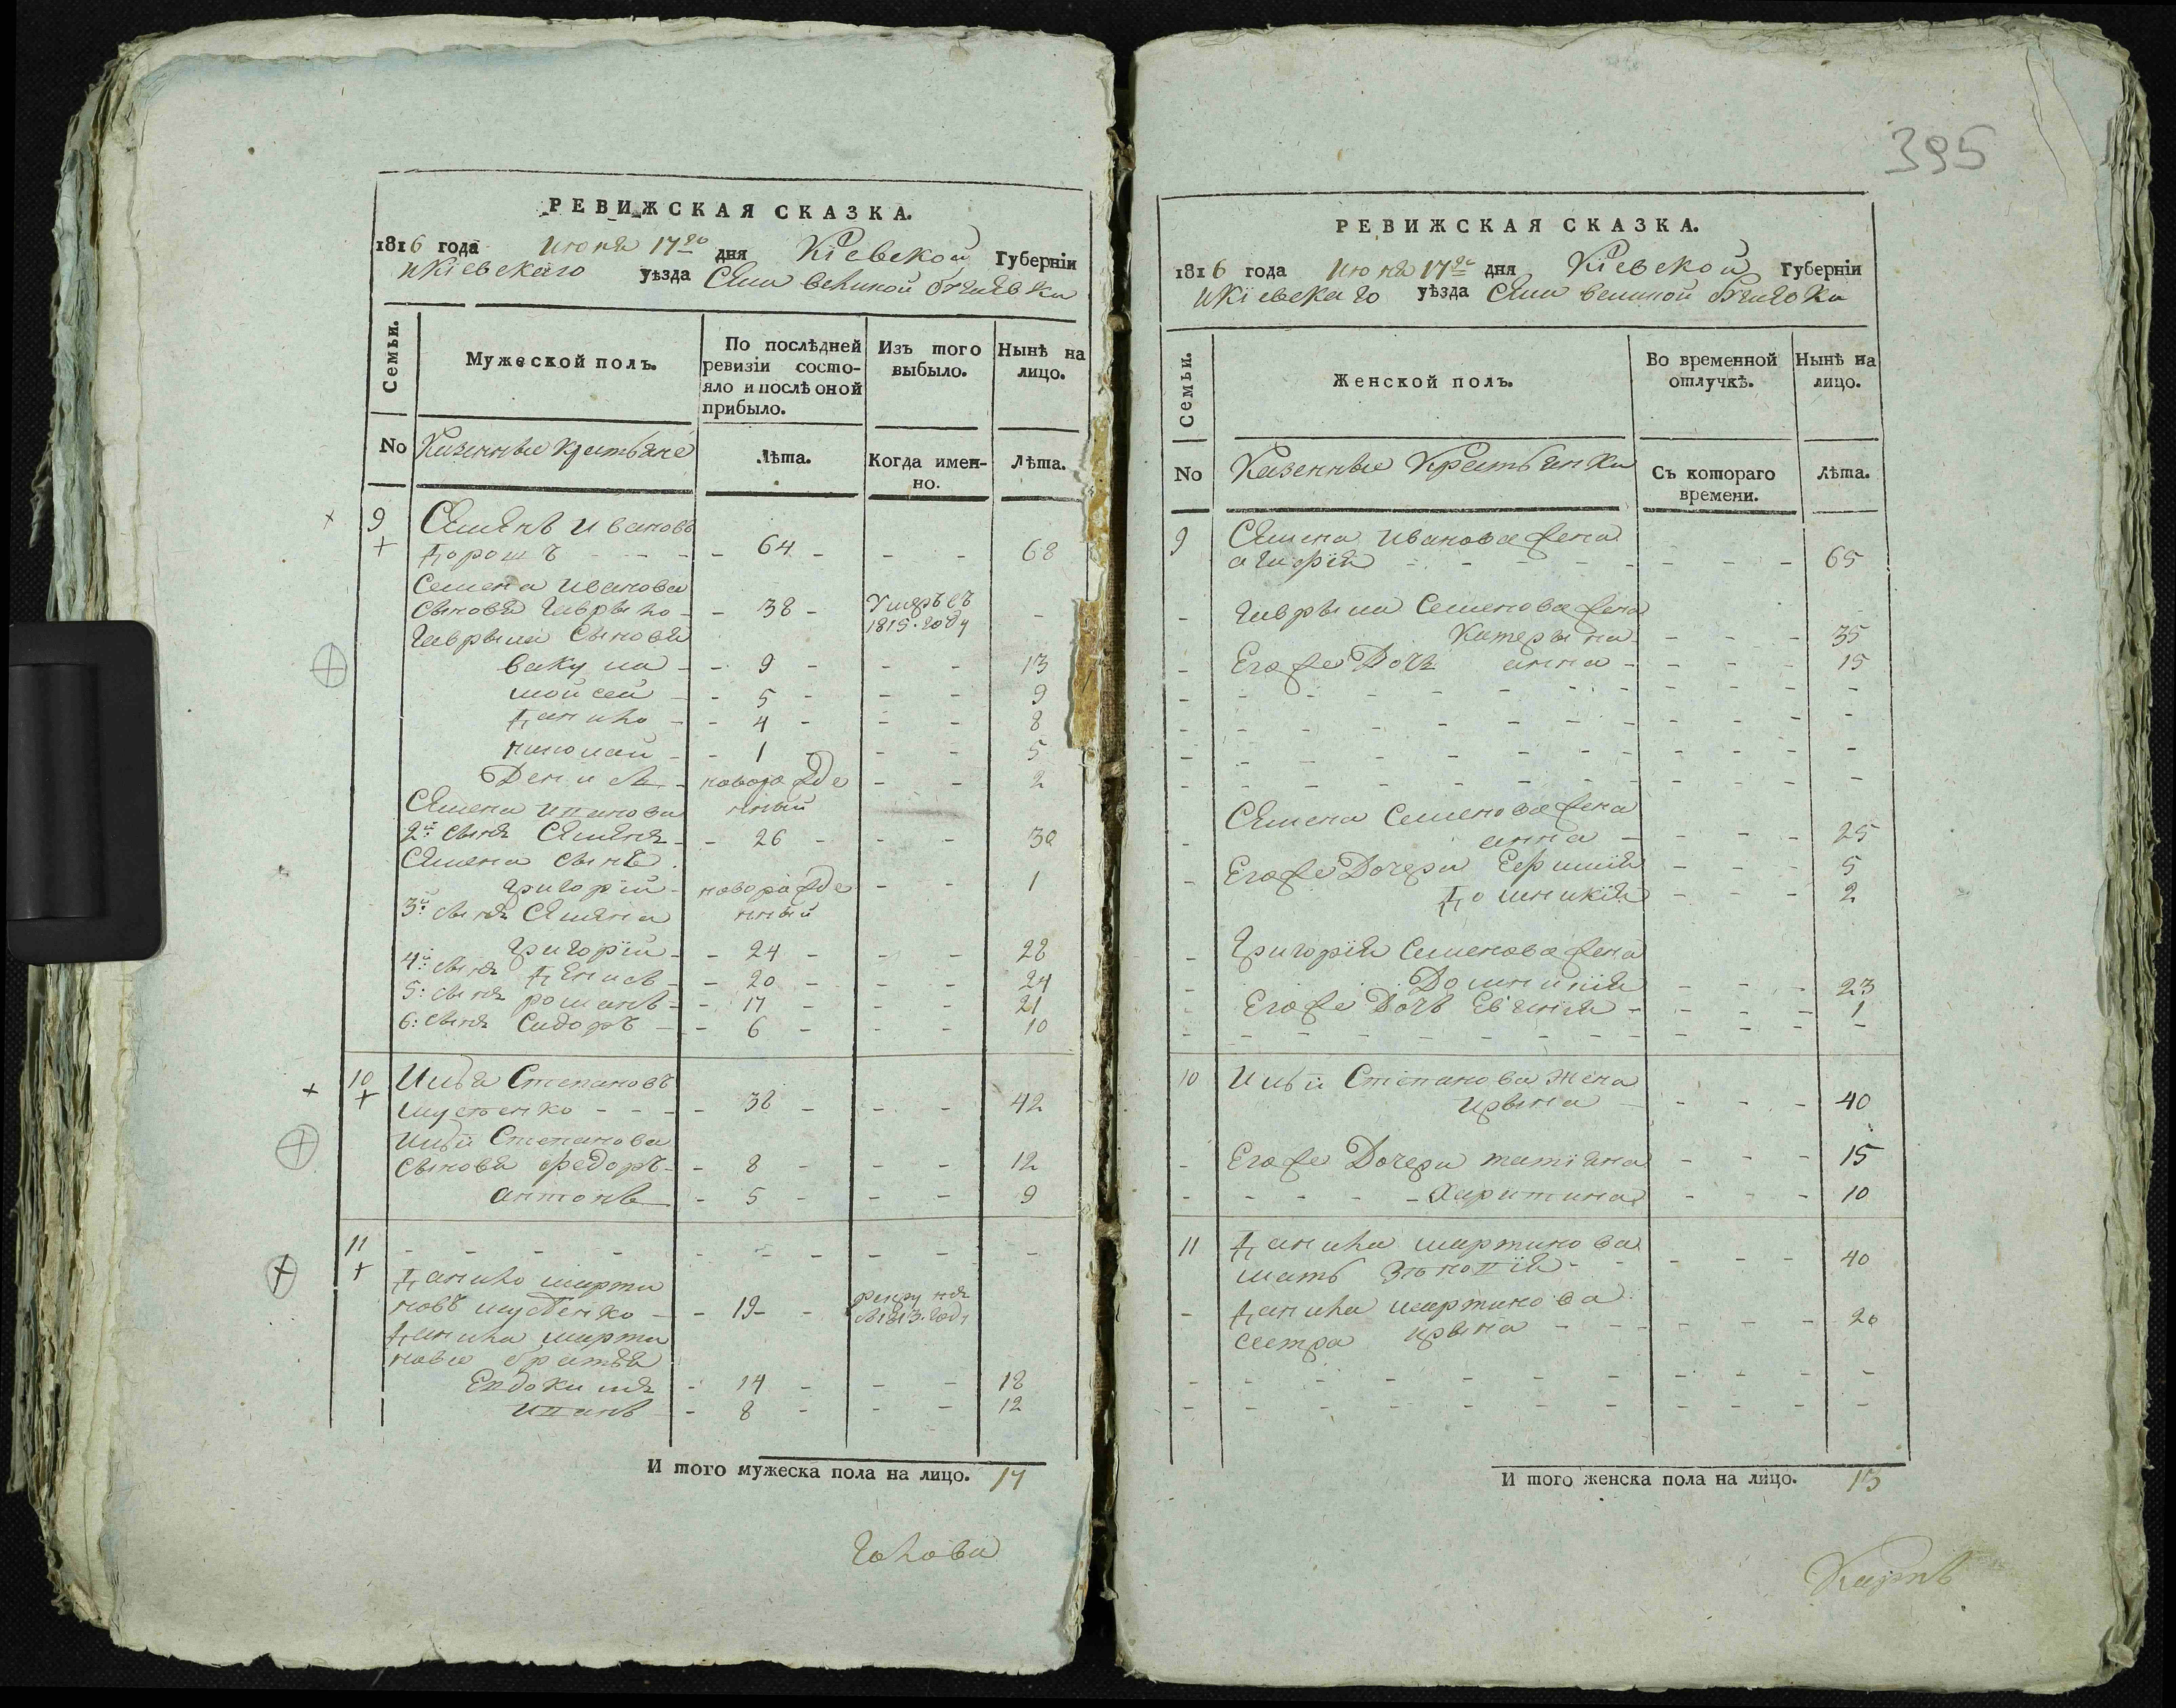 РЕВИЖСКАЯ СКАЗКА.
1816 года июня 17го дня Кіевской Губерніи
икіевскаго уѣзда Сяла великой бугаевки
Семьи. Мужеской полъ. По послѣдней ревизіи состояло и послѣ оной прибыло. Изъ того выбыло. Нынѣ на лицо.
No Казенные Крстьяне Лѣта. Когда именно. Лѣта.
9 Сямянъ ивановъ
дорошъ - - - 64 - - - 68
Семена иванова
сыновя гаврыло - - 38 - Умеръ въ 1815. году -
гаврыла сыновя
вакула - - 9 - - - 13
мойсей - - 5 - - - 9
данило - - 4 - - - 8
николай - - 1 - - - 5
Денисъ - новорожденный - - 2
Сямена иванова
2й: сынъ Сямянъ - - 26 - - - 30
Сямена сынъ
григорій - новорожденный - - 1
3й: сынъ Сямяна
григорій - - 24 - - - 28
4й: сынъ дянисъ - - 20 - - - 24
5: сынъ романъ - - 17 - - - 21
6: сынъ Сидоръ - - 6 - - - 10
10 Илья Степановъ
- - - - 38 - - - 42
Ильи Степанова
сыновя федоръ - - 8 - - - 12
антонъ - 5 - - - 9
11 - - - - - - - - - -
данило марти
новъ - - 19 - 1813. году
данила марти
новы братья
Евдокимъ - 14 - - - 18
иванъ - 8 - - - 12
И того мужеска пола на лицо. 17
голова
395
РЕВИЖСКАЯ СКАЗКА.
1816 года июня 17го дня Кіевской Губерніи
икіевскаго уѣзда Сяла великой бугаевки
Семьи. Женской полъ. Во временной отлучкѣ. Нынѣ на лицо.
No Казенные Крстьянки Съ котораго времени. лѣта.
9 Сямена иванова жена
агафія - - - - - - - - 65
- гаврыла Семенова жена
Катерына - - - 35
- Его же Дочь анна - - - - 15
Сямена Семенова жена
- анна - - - - 25
- Его же Дочери Ефимія - - - 5
домникія - - - 2
- григорія Семенова жена
- Домникія - - - 23
- Его же Дочь Евгенія - - - - 1
10 Ильи Степанова жена
ирына - - - - 40
- Его же Дочери татіяна - - - 15
- - - - - - Харитина - - - 10
11 данила мартинова
мать Зѣновія - - - - - 40
- данила мартинова
сестра ирына - - - - - - 20
И того женска пола на лицо. 13
Карпъ